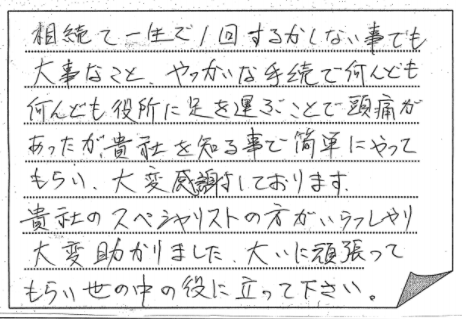 相続て一生で1回するかしない事でも
大事なこと、やっかいな手続で何んども
何んども役所に足を運ぶことで頭痛が
あったが、貴社を知る事で簡単にやって
もらい、大変感謝しております。
貴社のスペシャリストの方がいらっしゃり
大変助かりました。大いに頑張って
もらい世の中の役に立って下さい。